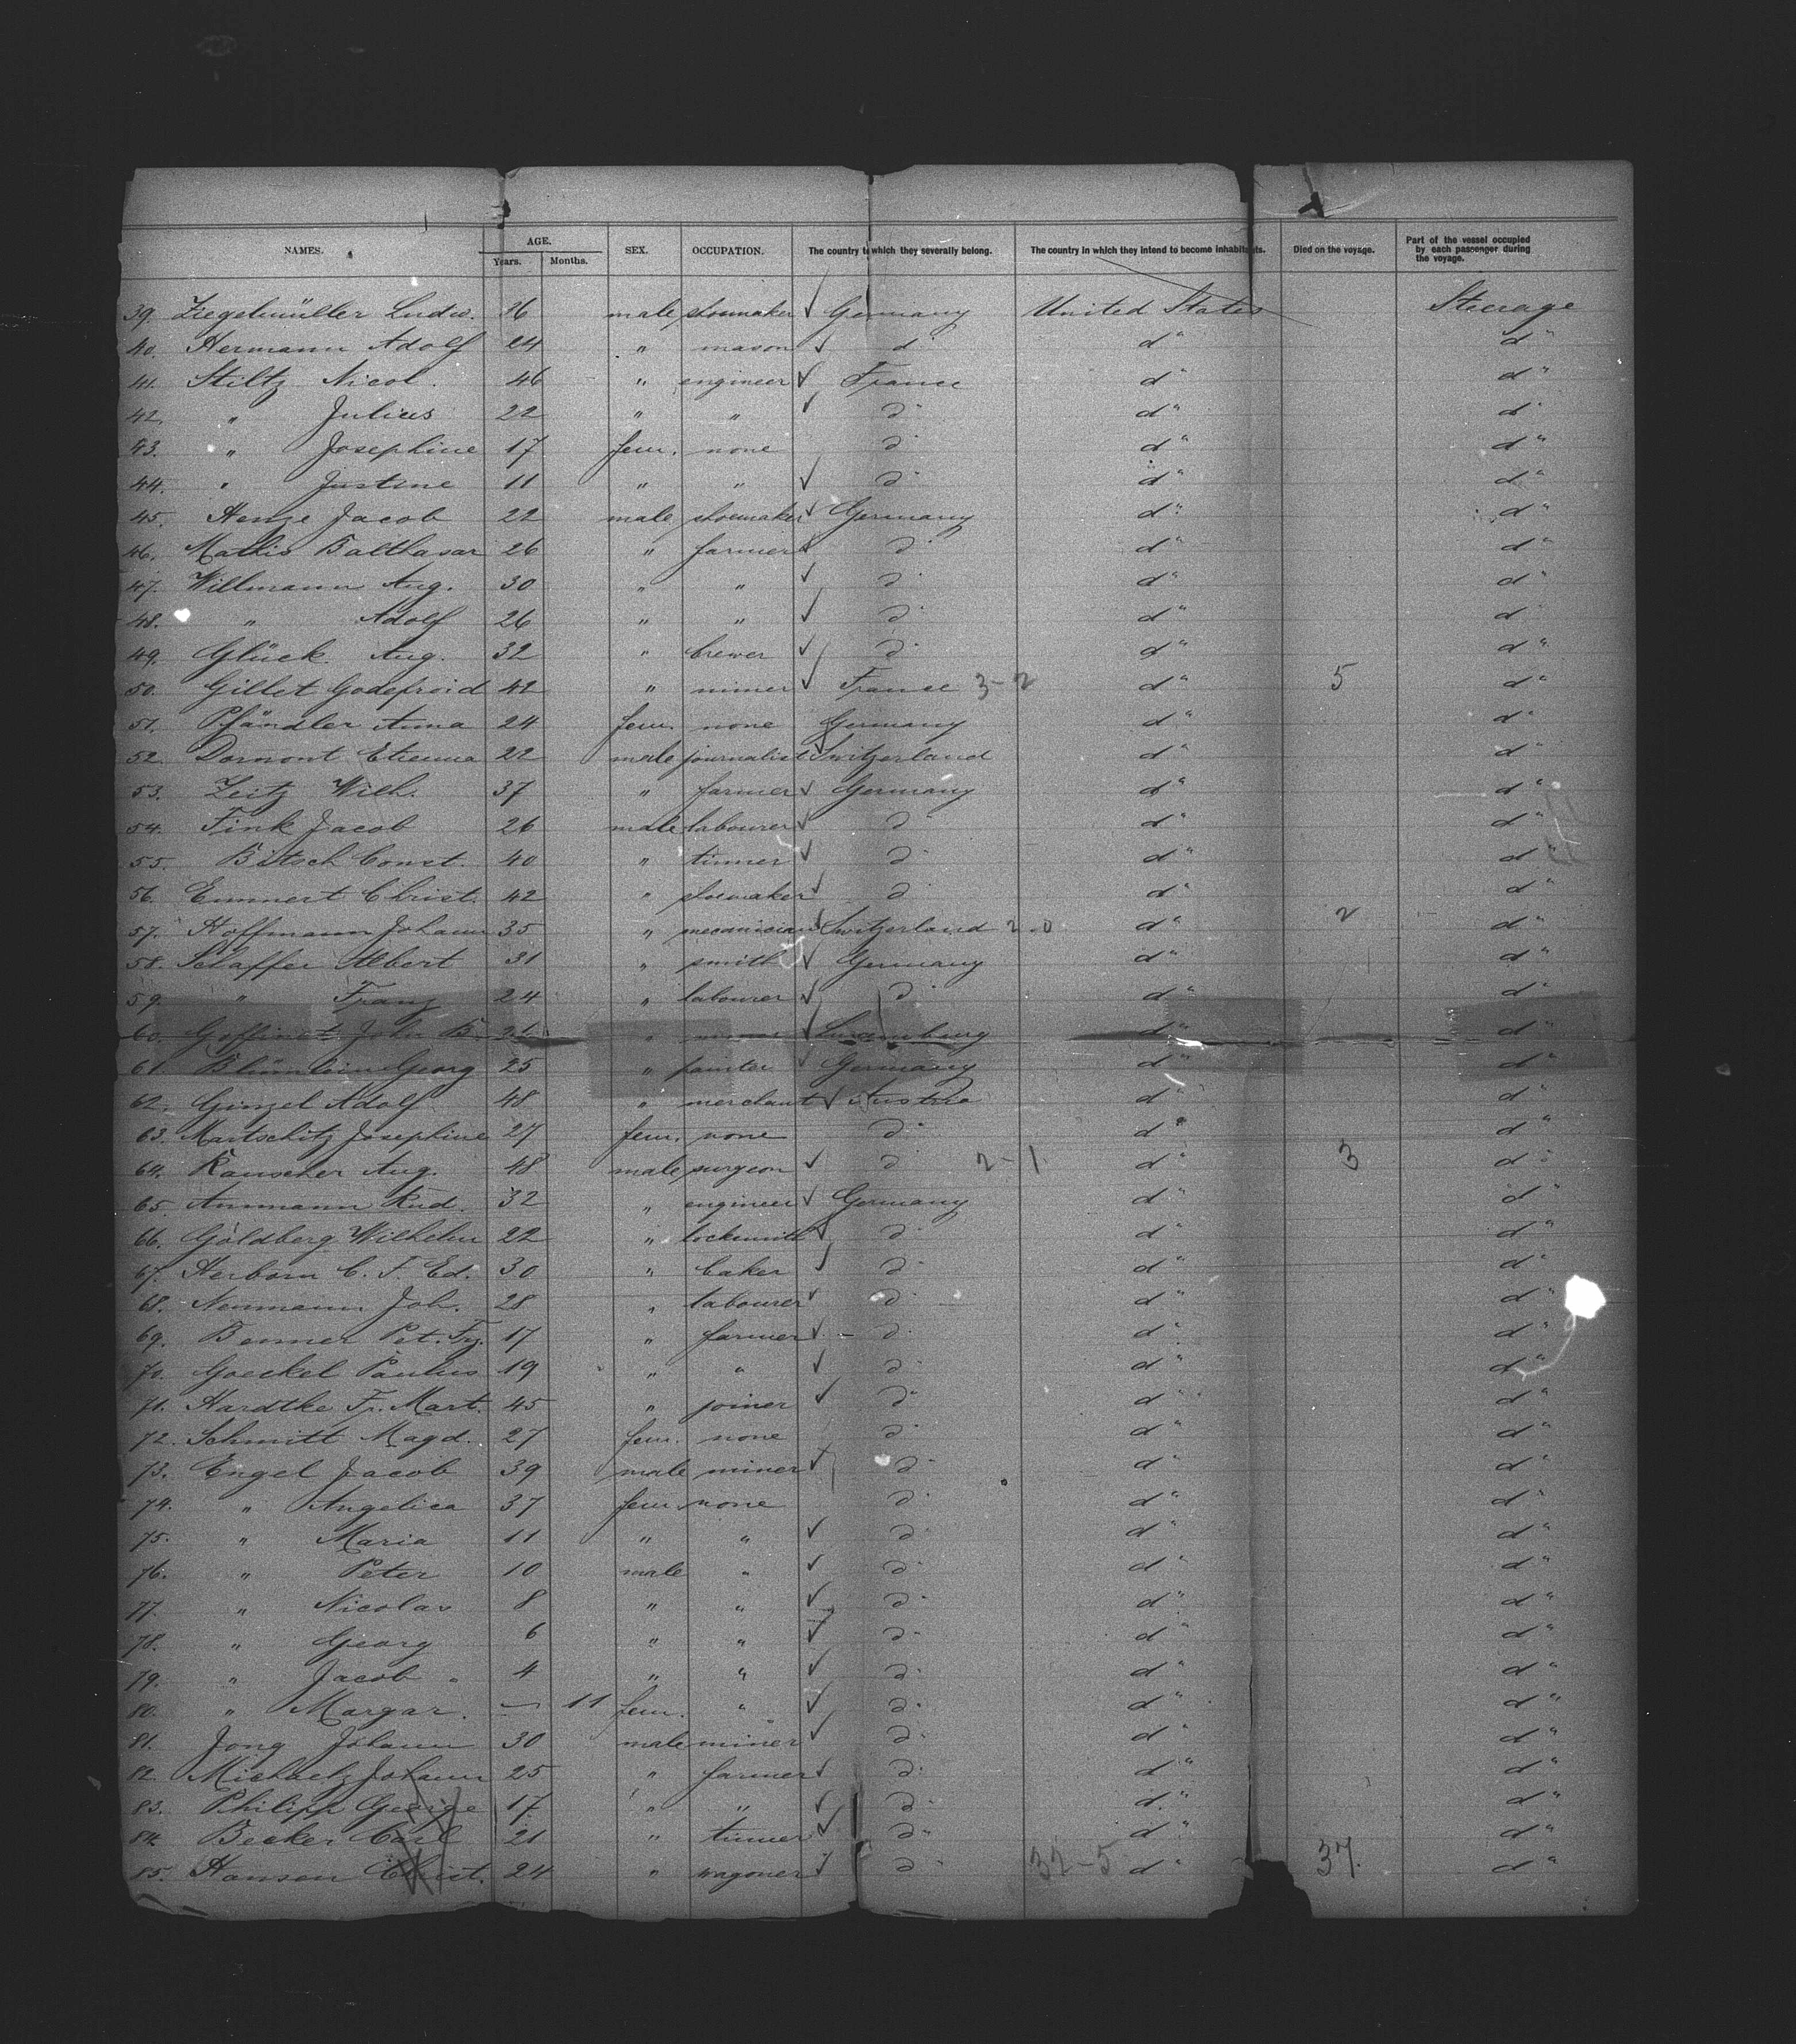 NAMES. AGE. SEX. OCCUPATION. The country to which they severally belong. The country in which they intend to become inhabitants. Died on the voyage. Part of the vessel occupied by each passenger during the voyage.
Years. Months.
39. Ziegelmüller Ludw. 26 male shoemaker ✓ Germany United States Steerage
40. Hermann Adolf 24 " mason ✓ d° d° d°
41. Stiltz Nicol. 46 " engineer ✓ France d° d°
42. " Julius 22 " " ✓ d° d° d°
43. " Josephine 17 fem. none d° d° d°
44. " Justine 11 " " ✓ d° d° d°
45. Henze Jacob 22 male shoemaker ✓ Germany d° d°
46. Mathis Balthasar 26 " farmer ✓ d° d° d°
47. Willmann Aug. 30 " " ✓ d° d° d°
48. " Adolf 26 " " ✓ d° d° d°
49. Glück Aug. 32 " brewer ✓ d° d° d°
50. Gillet Godefroid 42 " miner ✓ France 3-2 d° 5 d°
51. Pfändler Anna 24 fem. none Germany d° d°
52. Dornont Etienna 22 male journalist ✓ Switzerland d° d°
53. Zeitz Wilh. 37 " farmer ✓ Germany d° d°
54. Fink Jacob 26 male labourer ✓ d° d° d°
55. Bitsch Const. 40 " tinner ✓ d° d° d°
56. Emmert Christ. 42 " shoemaker ✓ d° d° d°
57. Hoffmann Johann 35 " mecanician ✓ Switzerland 2-0 d° 2 d°
58. Schaffer Albert 31 " smith ✓ Germany d° d°
59. " Franz 24 " labourer ✓ d° d° d°
60. Goffinet John B. " miner ✓ Luxemburg d° d°
61. Blümlein Georg 25 " painter ✓ Germany d° d°
62. Ginzel Adolf 48 " merchant ✓ Austria d° d°
63. Martschitz Josephine 27 fem. none d° d° d°
64. Rauscher Aug. 48 male surgeon ✓ d° 2-1 d° 3 d°
65. Ammann Rud. 32 " engineer ✓ Germany d° d°
66. Goldberg Wilhelm 22 " locksmith ✓ d° d° d°
67. Herborn C. F. Ed. 30 " baker ✓ d° d° d°
68. Neumann Joh. 28 " labourer ✓ d° d° d°
69. Benner Pet. Fz. 17 " farmer ✓ d° d° d°
70. Goeckel Paulus 19 " " ✓ d° d° d°
71. Hardtke Fr. Mart. 45 " joiner ✓ d° d° d°
72. Schmitt Magd. 27 fem. none d° d° d°
73. Engel Jacob 39 male miner ✓ d° d° d°
74. " Angelica 37 fem. none d° d° d°
75. " Maria 11 " " ✓ d° d° d°
76. " Peter 10 male " ✓ d° d° d°
77. " Nicolas 8 " " ✓ d° d° d°
78. " Georg 6 " " ✓ d° d° d°
79. " Jacob 4 " " ✓ d° d° d°
80. " Margar. — 11 fem. " ✓ d° d° d°
81. Jong Johann 30 male miner ✓ d° d° d°
82. Michaelz Johann 25 " farmer ✓ d° d° d°
83. Philipp George 17 " " ✓ d° d° d°
84. Becker Carl 21 " tinner ✓ d° d° d°
85. Hansen Christ. 24 " wagoner ✓ d° 32-5 d° 37. d°